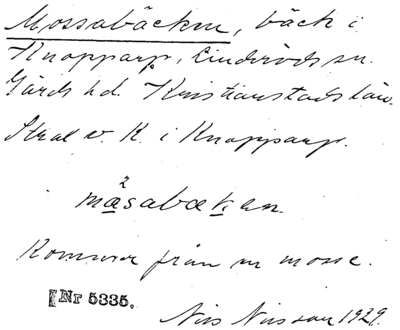 Mossabäcken, bäck i
Knopparp, Linderöds sn.
Gärds hd. Kristianstads län.
Str. av K. i Knopparp.
2
måsabæken.
Kommer från en mosse.
[Nr 5335.
Nils Nilsson 1929.